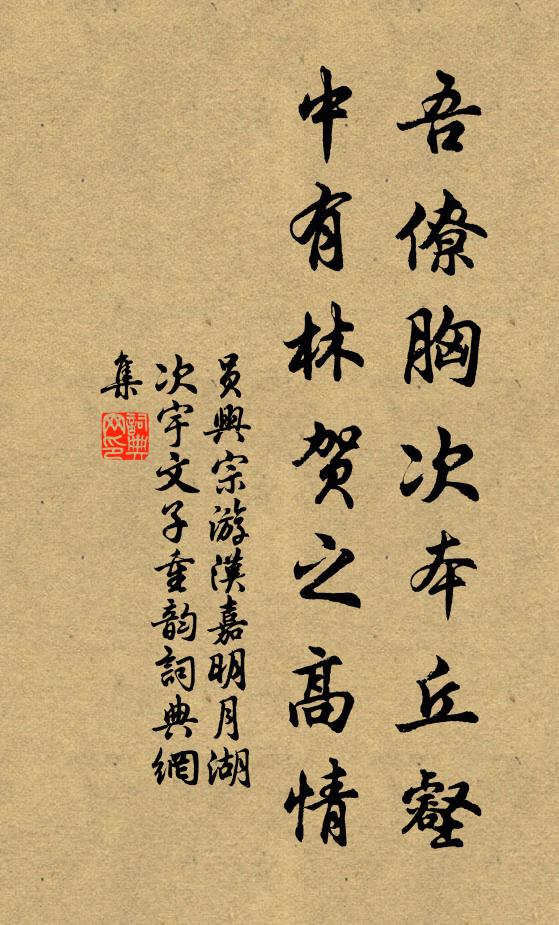 吾僚胸次本丘壑
中有林賀之高情
員興宗游漢嘉明月湖
次宇文子重韵詞典網
集
詞典網印